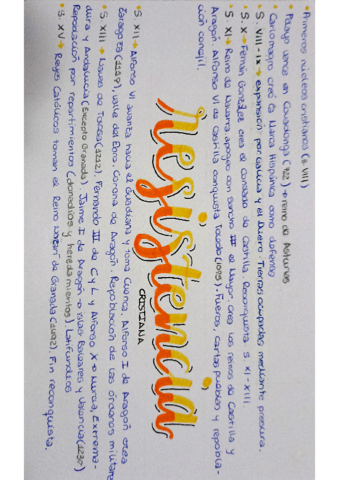 • Primeros núcleos cristianos (s. VIII)
• Pelayo vence en Covadonga (722) → reino de Asturias
• Carlomagno crea la Marca Hispánica como defensa
• S. VIII-IX → expansión por Galicia y el Duero. Tierras ocupadas mediante presura.
• S. X → Fernán González crea el condado de Castilla. Reconquista S. XI-XIII
• S. XI → Reino de Navarra apogeo con Sancho III el Mayor, crea los reinos de Castilla y
Aragón. Alfonso VI de Castilla conquista Toledo (1085). Fueros, cartas pueblas y repobla-
ción concejil.
Resistencia
CRISTIANA
S. XII → Alfonso VI avanza hacia el Guadiana y toma Cuenca. Alfonso I de Aragón ocupa
Zaragoza, valle del Ebro. Corona de Aragón. Repoblación de las órdenes militares
• S. XIII → Navas de Tolosa (1212). Fernando III de C y L y Alfonso X → Murcia, Extrema-
dura y Andalucía (excepto Granada). Jaime I de Aragón → Islas Baleares y Valencia
Repoblación por repartimientos (donadíos y heredamientos) Latifundios
• S. XV → Reyes Católicos toman el Reino Nazarí de Granada (1492). Fin reconquista.